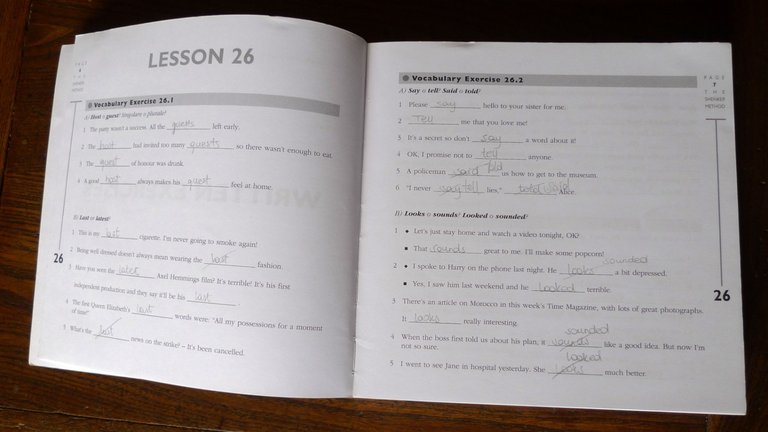 LESSON 26
PAGE
THE
SHENKER
METHOD
Vocabulary Exercise 26.1
A) Host o guest? Singolare o plurale?
1 The party wasn't a success. All the guests left early.
2 The host had invited too many guests so there wasn't enough to eat.
3 The guest of honour was drunk.
4 A good host always makes his guest feel at home.
B) Last o latest?
1 This is my last cigarette. I'm never going to smoke again!
2 Being well dressed doesn't always mean wearing the last fashion.
26
3 Have you seen the latest Axel Hemmings film? It's terrible! It's his first
independent production and they say it'll be his last.
4 The first Queen Elizabeth's last words were: "All my possessions for a moment
of time!"
5 What's the last news on the strike? – It's been cancelled.
Vocabulary Exercise 26.2
PAGE
7
THE
SHENKER
METHOD
A) Say o tell? Said o told?
1 Please say hello to your sister for me.
2 Tell me that you love me!
3 It's a secret so don't say a word about it!
4 OK, I promise not to tell anyone.
told
5 A policeman said us how to get to the museum.
6 "I never say tell lies," told said Alice.
B) Looks o sounds? Looked o sounded?
1 Let's just stay home and watch a video tonight, OK?
That sounds great to me. I'll make some popcorn!
sounded
2 I spoke to Harry on the phone last night. He looks a bit depressed.
Yes, I saw him last weekend and he looked terrible.
26
3 There's an article on Morocco in this week's Time Magazine, with lots of great photographs.
It looks really interesting.
sounded
4 When the boss first told us about his plan, it sounds like a good idea. But now I'm
not so sure.
looked
5 I went to see Jane in hospital yesterday. She looks much better.